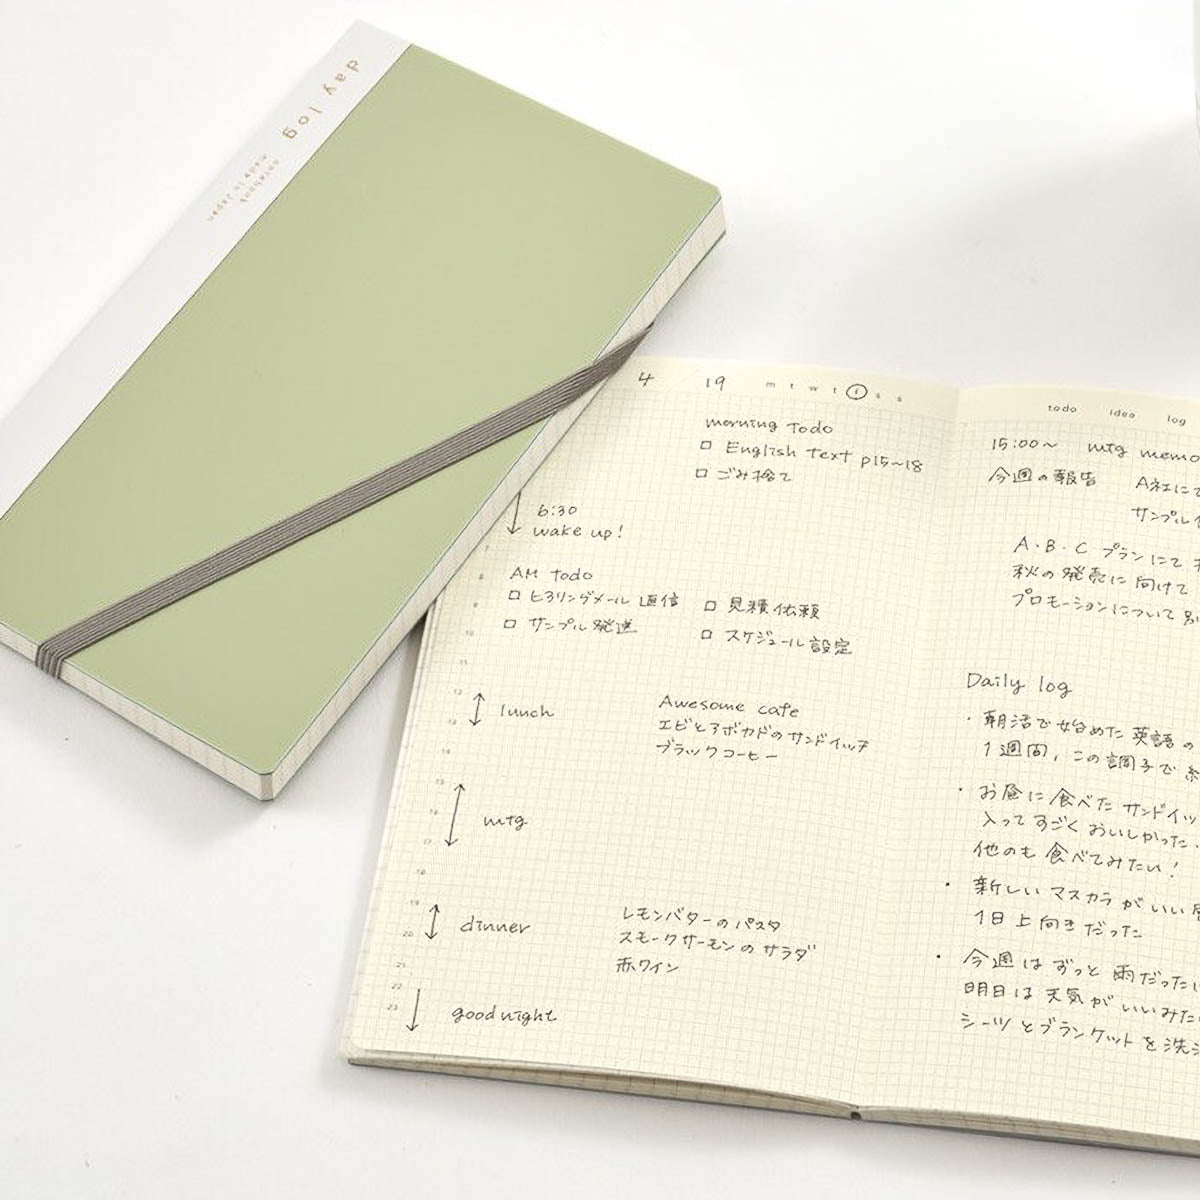 day log
notebook
made in Japan
4 / 19 m t w t f s s
morning Todo
□ English text p15~18
□ ごみ捨て
6:30
wake up!
AM todo
□ ヒアリングメール 返信 □ 見積依頼
□ サンプル発送 □ スケジュール設定
lunch
Awesome cafe
エビとアボカドのサンドイッチ
ブラックコーヒー
mtg
dinner
レモンバターのパスタ
スモークサーモンのサラダ
赤ワイン
good night
7
8
9
10
11
12
13
14
15
16
17
18
19
20
21
22
23
todo idea log
15:00~ mtg memo
今週の報告 A社にて
サンプル
A・B・Cプランにて
秋の発売に向けて
プロモーションについて
Daily log
・朝活で始めた英語の
1週間、この調子で
・お昼に食べたサンドイッ
入ってすごくおいしかった.
他のも食べてみたい!
・新しいマスカラがいい
1日上向きだった
・今週はずっと雨だった
明日は天気がいいみた
シーツとブランケットを洗